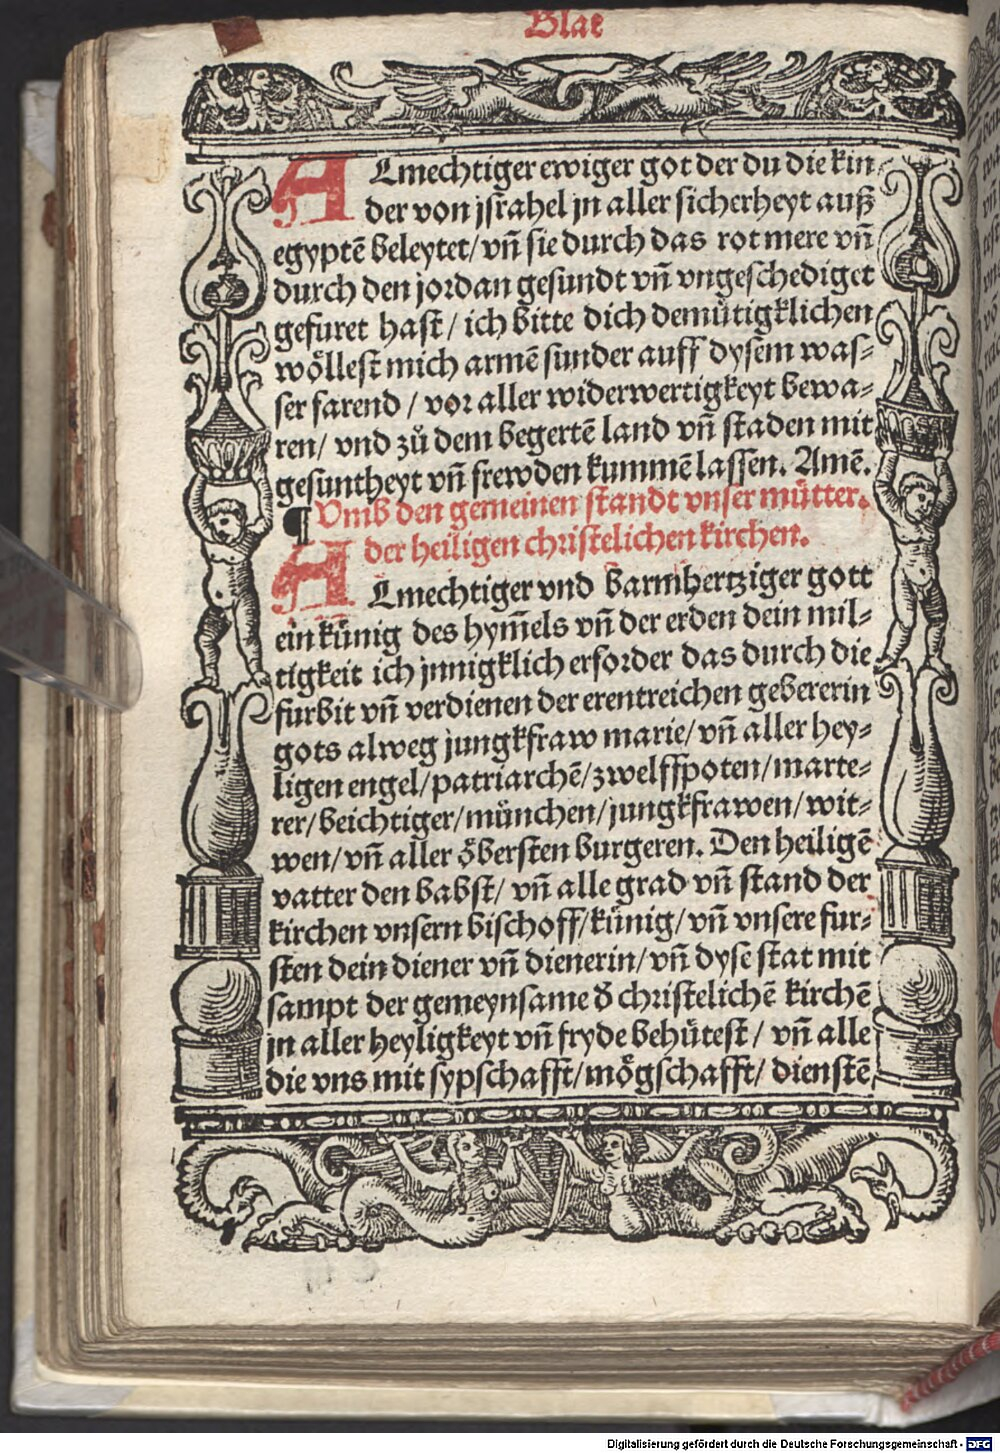 Blat
ALmechtiger ewiger got der du die kin
der von jsrahel jn aller sicherheyt auß
egyptē beleytet/ vn̄ sie durch das rot mere vn̄
durch den jordan gesundt vn̄ vngeschediget
gefuret hast/ ich bitte dich demütigklichen
wöllest mich armē sunder auff dysem was⸗
ser farend / vor aller widerwertigkeyt bewa⸗
ren/ vnd zů dem begertē land vn̄ staden mit
gesuntheyt vn̄ frewden kummē lassen. Amē.
¶ Vmb den gemeinen standt vnser mütter.
der heiligen christelichen kirchen.
ALmechtiger vnd barmhertziger gott
ein künig des hym̄els vn̄ der erden dein mil⸗
tigkeit ich jnnigklich erforder das durch die
furbit vn̄ verdienen der erentreichen gebererin
gots alweg jungkfraw marie/ vn̄ aller hey⸗
ligen engel/ patriarchē/ zwelffpoten/ marte⸗
rer/ beichtiger/ münchen/ jungkfrawen/ wit⸗
wen/ vn̄ aller öbersten burgeren. Den heiligē
vatter den babst/ vn̄ alle grad vn̄ stand der
kirchen vnsern bischoff/ künig/ vn̄ vnsere fur⸗
sten dein diener vn̄ dienerin/ vn̄ dyse stat mit
sampt der gemeynsame d̄ christelichē kirchē
jn aller heyligkeyt vn̄ fryde behütest/ vn̄ alle
die vns mit sypschafft/ mögschafft/ dienstē
Digitalisierung gefördert durch die Deutsche Forschungsgemeinschaft - DFG